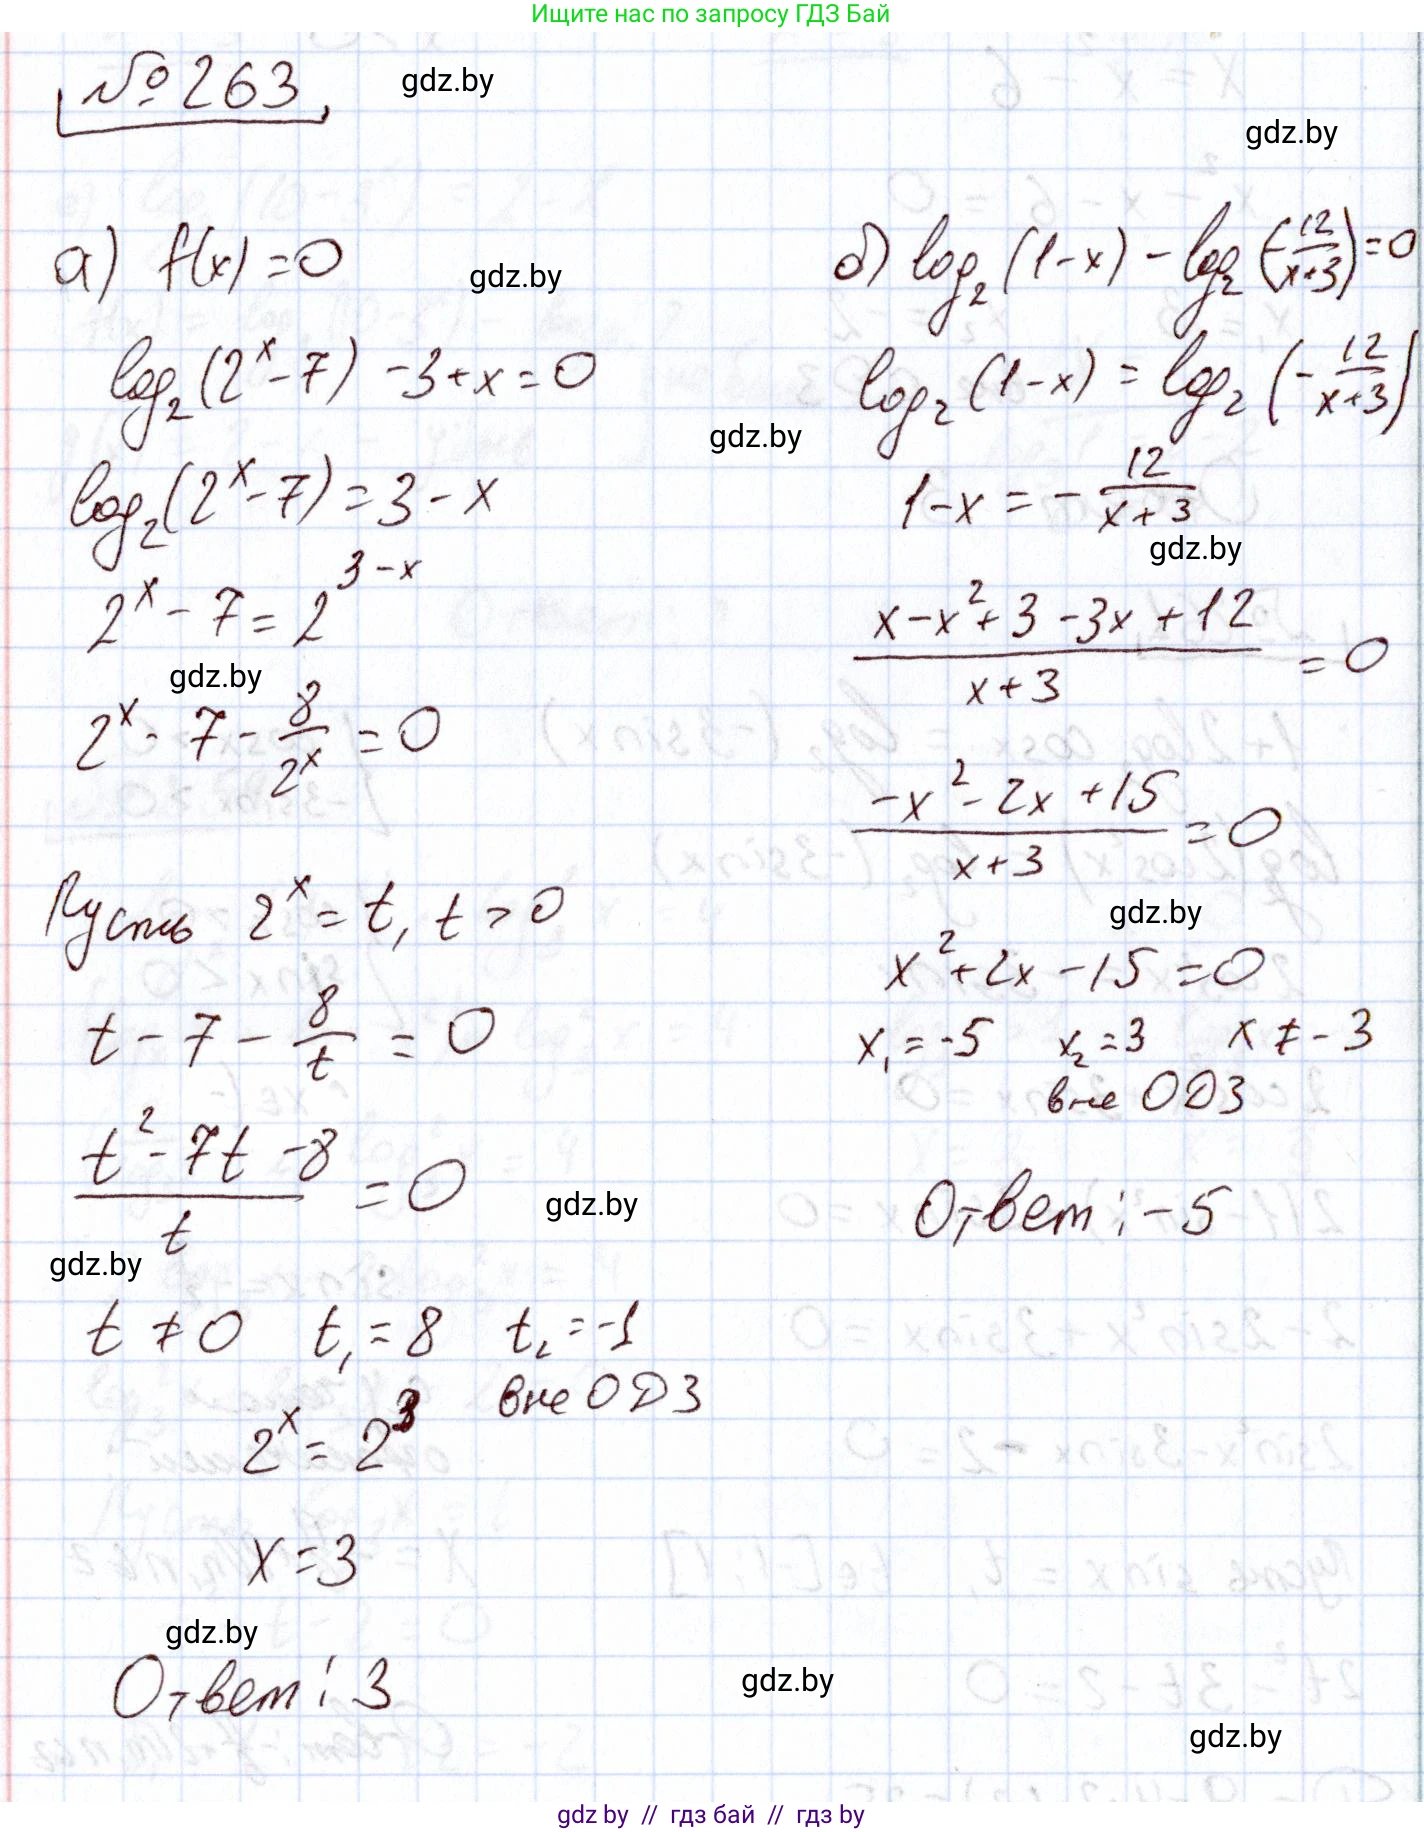 Ищите нас по запросу ГДЗ Бай
№ 263
gdz.by
gdz.by
а) f(x) = 0
gdz.by
log₂(2ˣ - 7) - 3 + x = 0
gdz.by
log₂(2ˣ - 7) = 3 - x
2ˣ - 7 = 2³⁻ˣ
gdz.by
2ˣ - 7 - 8/2ˣ = 0
Пусть 2ˣ = t, t > 0
t - 7 - 8/t = 0
(t² - 7t - 8)/t = 0
gdz.by
gdz.by
t ≠ 0 t₁ = 8 t₂ = -1
вне ОДЗ
2ˣ = 2³
x = 3
gdz.by
Ответ: 3
б) log₂(1-x) - log₂(-12/(x+3)) = 0
log₂(1-x) = log₂(-12/(x+3))
1-x = -12/(x+3)
gdz.by
(x - x² + 3 - 3x + 12)/(x+3) = 0
(-x² - 2x + 15)/(x+3) = 0
gdz.by
x² + 2x - 15 = 0
x₁ = -5 x₂ = 3 x ≠ -3
вне ОДЗ
Ответ: -5
gdz.by
gdz.by
gdz by // гдз бай // гдз by